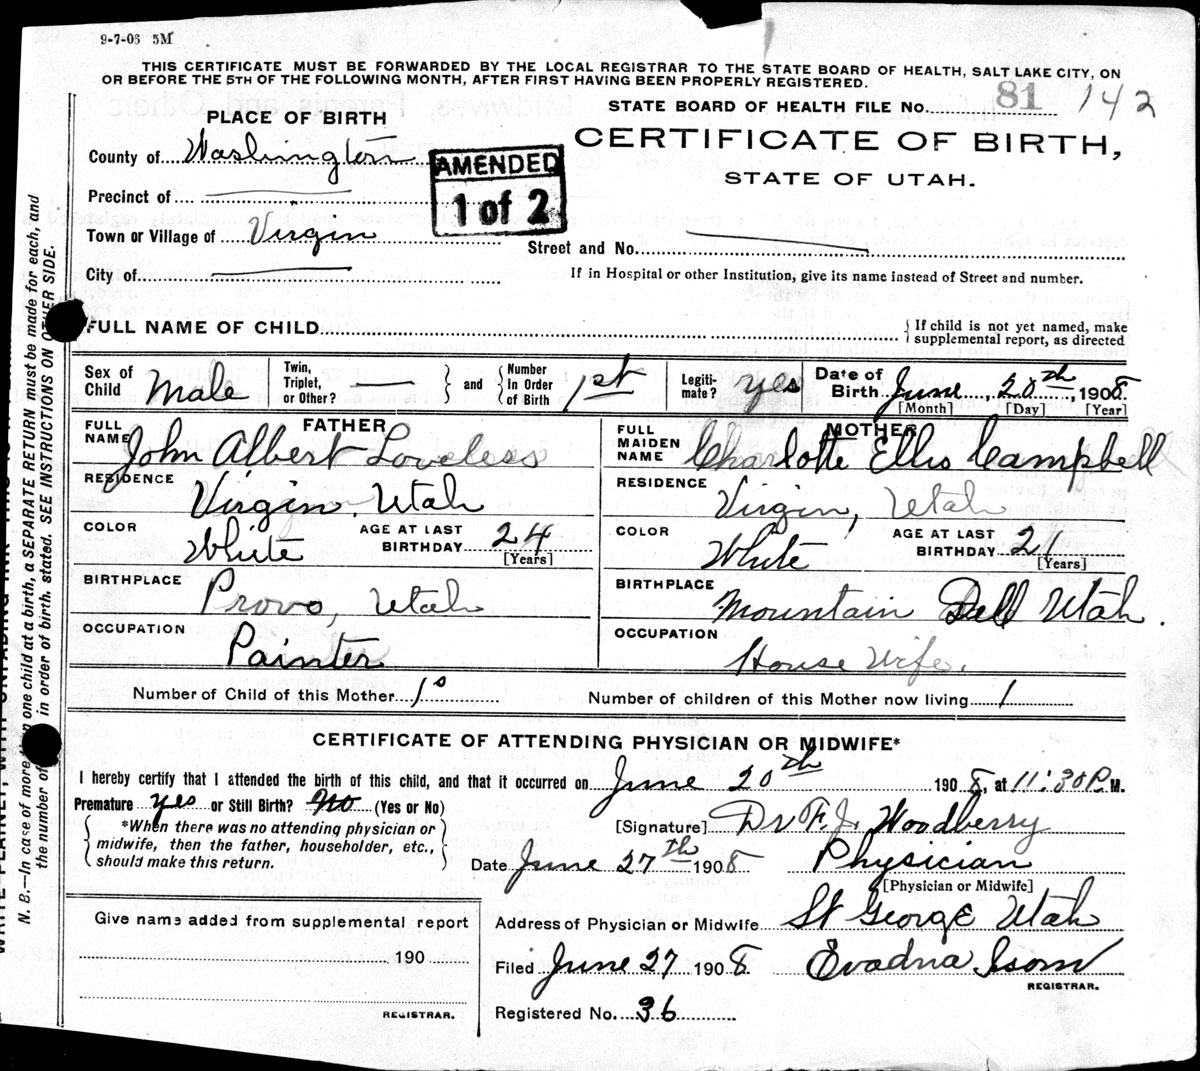 9-7-06 5M
THIS CERTIFICATE MUST BE FORWARDED BY THE LOCAL REGISTRAR TO THE STATE BOARD OF HEALTH, SALT LAKE CITY, ON
OR BEFORE THE 5TH OF THE FOLLOWING MONTH, AFTER FIRST HAVING BEEN PROPERLY REGISTERED.
STATE BOARD OF HEALTH FILE No. 81 142
PLACE OF BIRTH
CERTIFICATE OF BIRTH,
STATE OF UTAH.
County of Washington
AMENDED
1 of 2
Precinct of
Town or Village of Virgin
Street and No.
City of
If in Hospital or other Institution, give its name instead of Street and number.
FULL NAME OF CHILD
{ If child is not yet named, make
supplemental report, as directed
Sex of Child Male
Twin, Triplet, or Other? — } and { Number In Order of Birth 1st
Legiti-mate? yes
Date of Birth June, 20th, 1908
[Month] [Day] [Year]
FATHER
FULL NAME John Albert Loveless
RESIDENCE Virgin, Utah
COLOR White
AGE AT LAST BIRTHDAY 24 [Years]
BIRTHPLACE Provo, Utah
OCCUPATION Painter
MOTHER
FULL MAIDEN NAME Charlotte Ellis Campbell
RESIDENCE Virgin, Utah
COLOR White
AGE AT LAST BIRTHDAY 21 [Years]
BIRTHPLACE Mountain Dell Utah.
OCCUPATION House Wife.
Number of Child of this Mother 1st
Number of children of this Mother now living 1
CERTIFICATE OF ATTENDING PHYSICIAN OR MIDWIFE*
I hereby certify that I attended the birth of this child, and that it occurred on June 20th 1908, at 11:30 P.M.
Premature yes or Still Birth? No (Yes or No)
{ *When there was no attending physician or
midwife, then the father, householder, etc.,
should make this return. }
[Signature] Dr F. J. Woodberry
Date June 27th 1908 Physician
[Physician or Midwife]
Address of Physician or Midwife St George Utah
Filed June 27 1908 Evadna Isom
REGISTRAR.
Registered No. 36
Give name added from supplemental report
190
REGISTRAR.
N. B.—In case of more one child at a birth, a SEPARATE RETURN must be made for each, and
the number of in order of birth. stated. SEE INSTRUCTIONS ON OTHER SIDE.